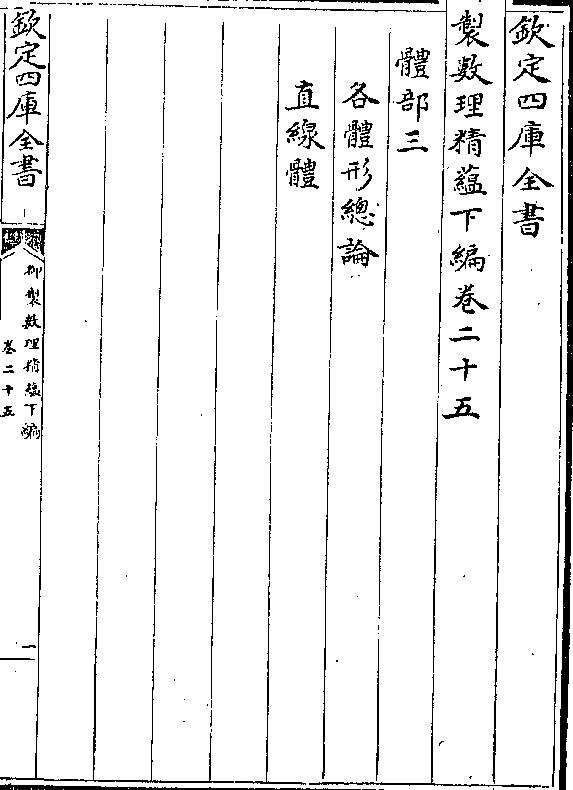 欽定四庫全書
製數理精蘊下編卷二十五
體部三
各體形總論
直線體
欽定四庫全書
御製數理精蘊下編
卷二十五
一